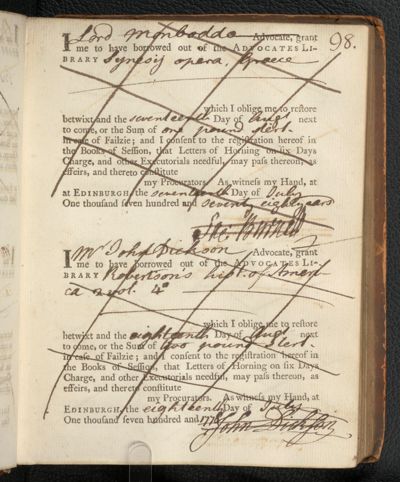 98.
I Lord Monboddo Advocate, grant
me to have borrowed out of the ADVOCATES LI-
BRARY Synesij opera, Graece
which I oblige me to restore
betwixt and the seventeenth Day of Augt next
to come, or the Sum of one pound sterl.
in case of Failzie; and I consent to the registration hereof in
the Books of Session, that Letters of Horning on six Days
Charge, and other Executorials needful, may pass thereon, as
effeirs, and thereto constitute
my Procurators. As witness my Hand, at
at EDINBURGH, the seventeenth Day of July
One thousand seven hundred and seventy eight years
Ja: Burnett
I Mr John Dickson Advocate, grant
me to have borrowed out of the ADVOCATES LI-
BRARY Robertson's hist. of Ameri
ca 2 vol. 4o
which I oblige me to restore
betwixt and the eighteenth Day of Augt next
to come, or the Sum of two pound sterl.
in case of Failzie; and I consent to the registration hereof in
the Books of Session, that Letters of Horning on six Days
Charge, and other Executorials needful, may pass thereon, as
effeirs, and thereto constitute
my Procurators. As witness my Hand, at
EDINBURGH, the eighteenth Day of July
One thousand seven hundred and 1778
John Dickson